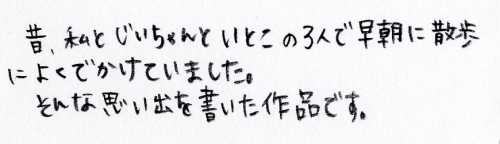 昔、私とじいちゃんといとこの3人で早朝に散歩
によくでかけていました。
そんな思い出を書いた作品です。